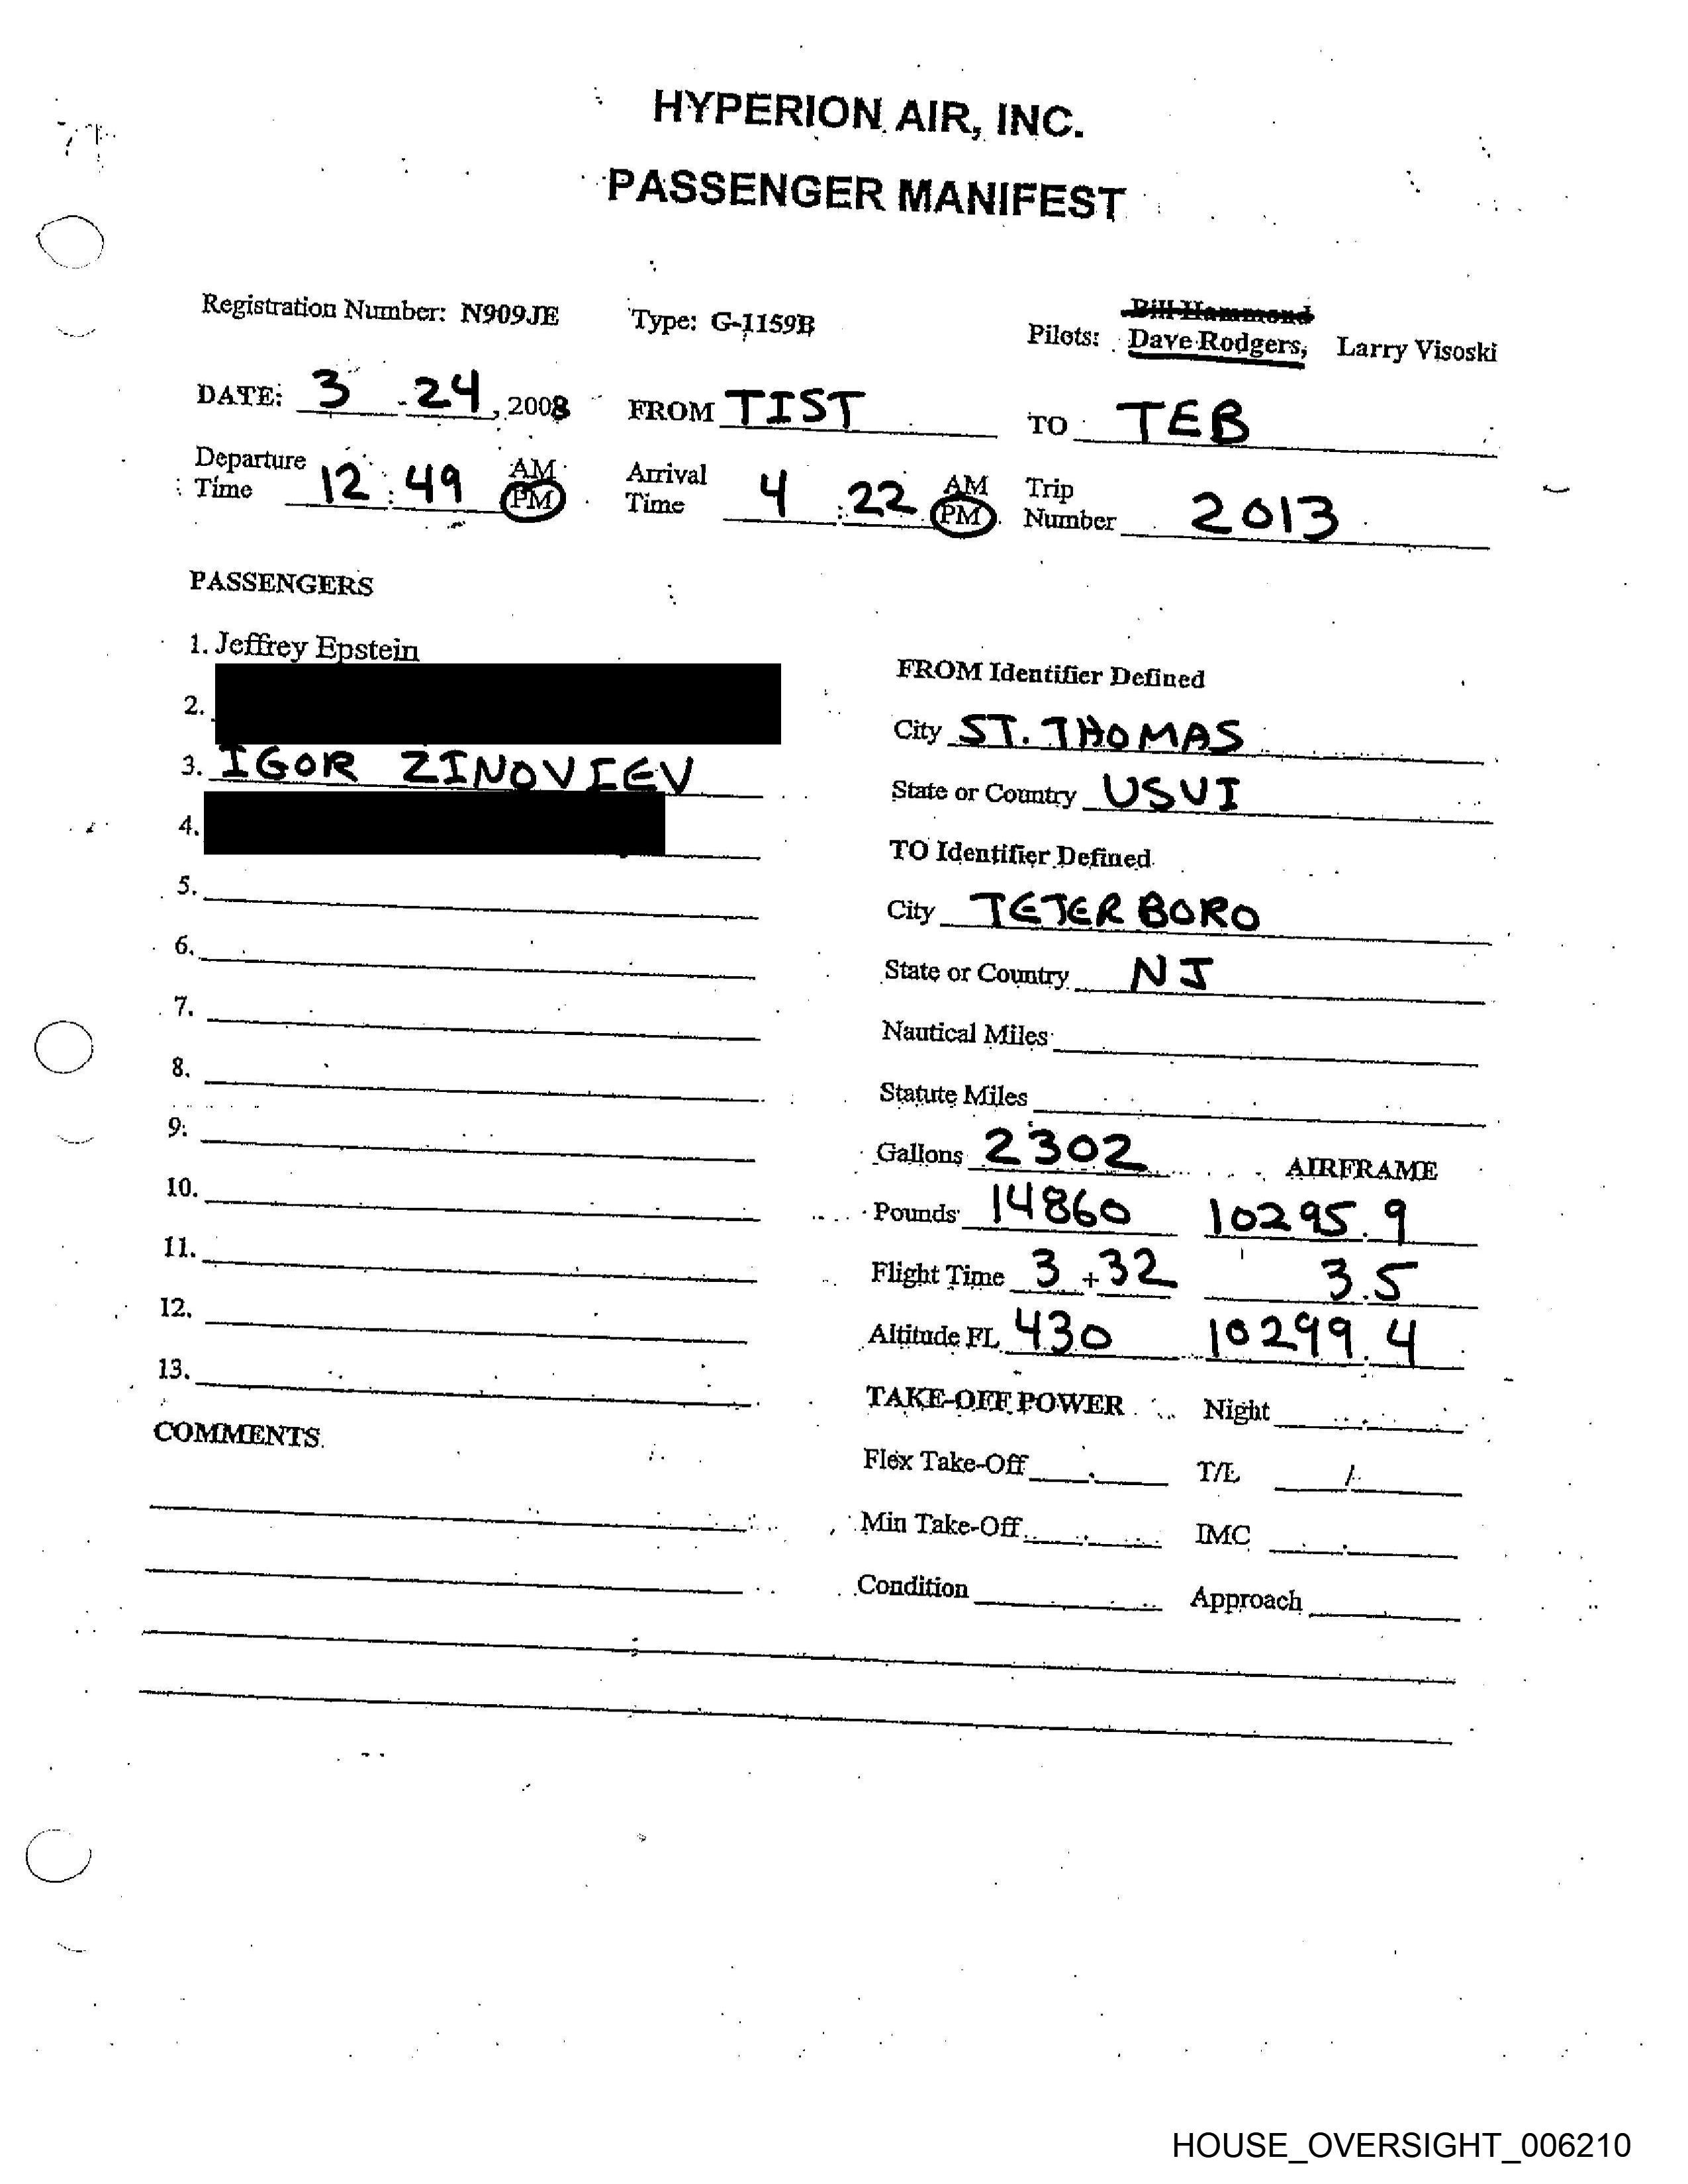 HYPERION AIR, INC.
PASSENGER MANIFEST
Bill Hammond
Registration Number: N909JE Type: G-1159B Pilots: Dave Rodgers, Larry Visoski
DATE: 3 24, 2008 FROM TIST TO TEB
Departure Time 12:49 AM PM Arrival Time 4:22 AM PM Trip Number 2013
PASSENGERS
1. Jeffrey Epstein
2.
3. IGOR ZINOVIEV
4.
5.
6.
7.
8.
9.
10.
11.
12.
13.
COMMENTS
FROM Identifier Defined
City ST. THOMAS
State or Country USVI
TO Identifier Defined
City TETERBORO
State or Country NJ
Nautical Miles
Statute Miles
Gallons 2302 AIRFRAME
Pounds 14860 10295.9
Flight Time 3+32 3.5
Altitude FL 430 10299.4
TAKE-OFF POWER Night
Flex Take-Off T/L /
Min Take-Off IMC
Condition Approach
HOUSE_OVERSIGHT_006210